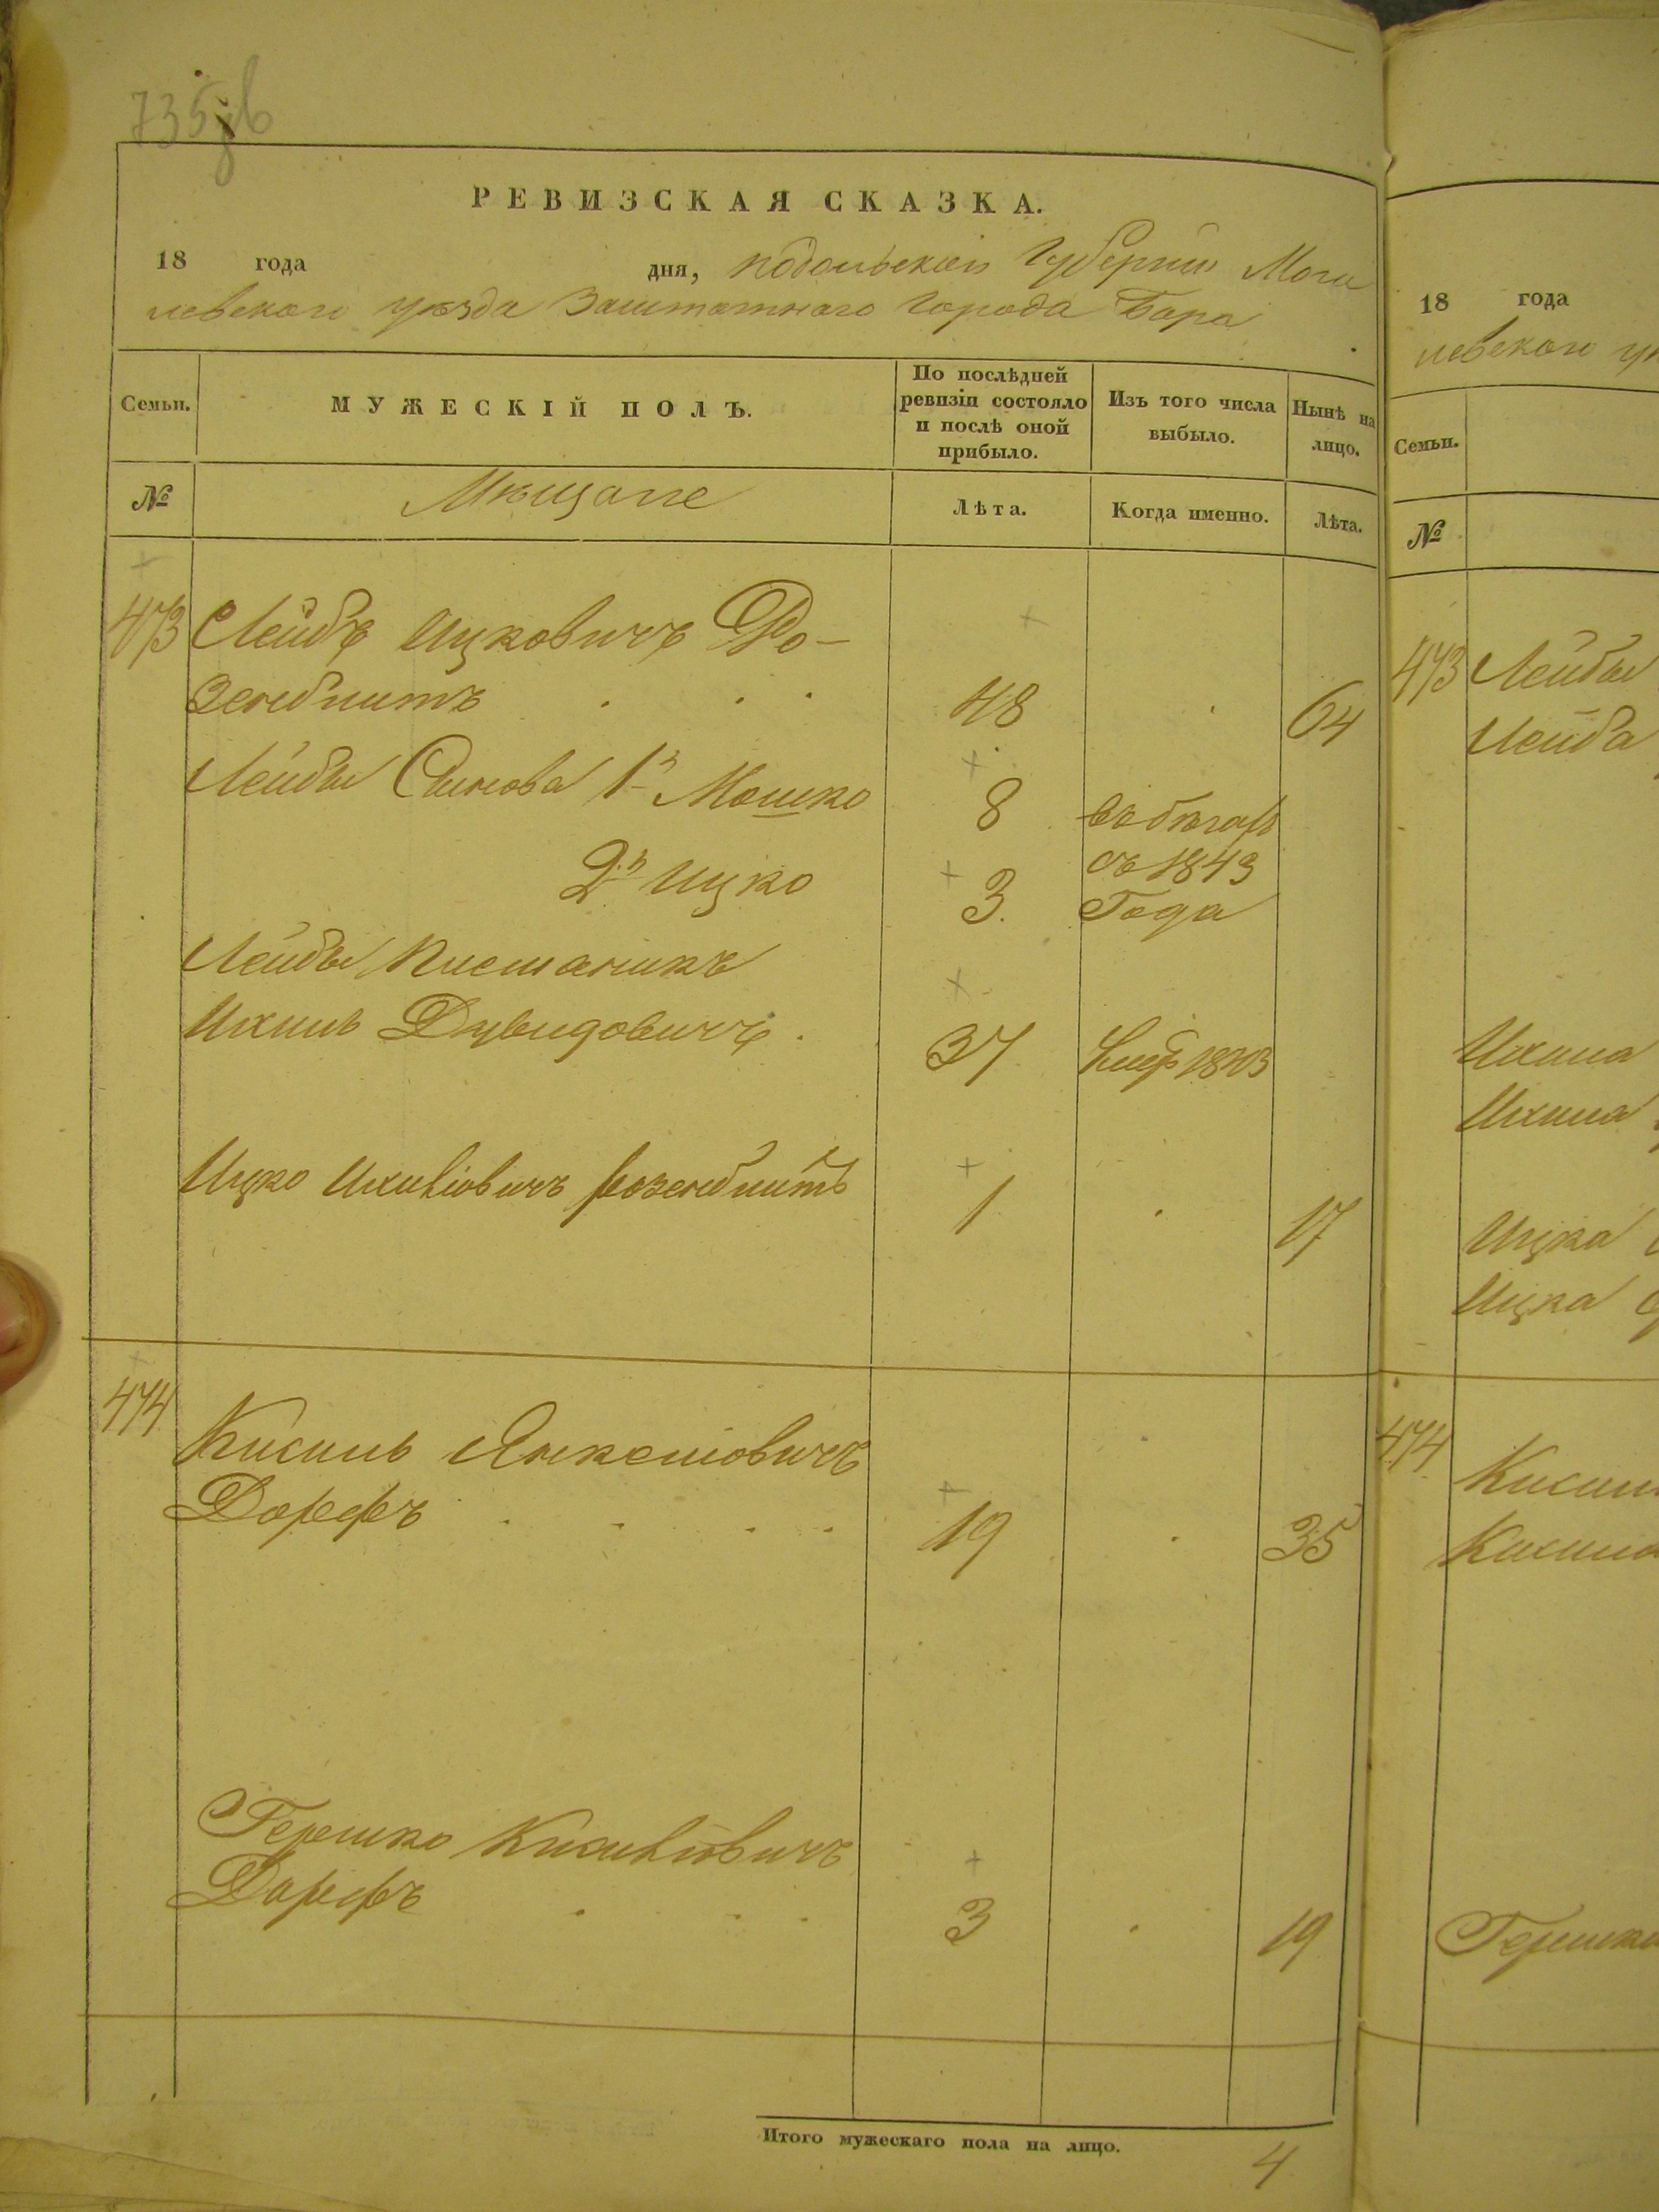 РЕВИЗСКАЯ СКАЗКА.
18 года дня, Подольской Губернии Моги
левскаго уѣзда Заштатнаго Города Бара
Семьи.
МУЖЕСКІЙ ПОЛЪ.
По послѣдней ревизіи состояло и послѣ оной прибыло.
Изъ того числа выбыло.
Нынѣ на лицо.
№
Мѣщане
Лѣта.
Когда именно.
Лѣта.
473 Лейбъ Ицковичъ Ро-
зенблитъ 48 64
Лейбы Сынова 1й Мошко 8 въ бѣгахъ
съ 1843
2й Ицко 3. Года
Лейбы Племяникъ
Ихиль Дувидовичъ. 37 1843
Ицко Ихилiовичъ Розенблитъ 1 17
474
Кисиль Янкелiовичъ
Дорфъ 19 35
Гершко Кисилiовичъ
Дорфъ 3 19
Итого мужескаго пола на лицо. 4
18 года
левскаго
Семьи.
№
473 Лейбы
Лейба
Ихила
Ихила
Ицка
Ицка
474